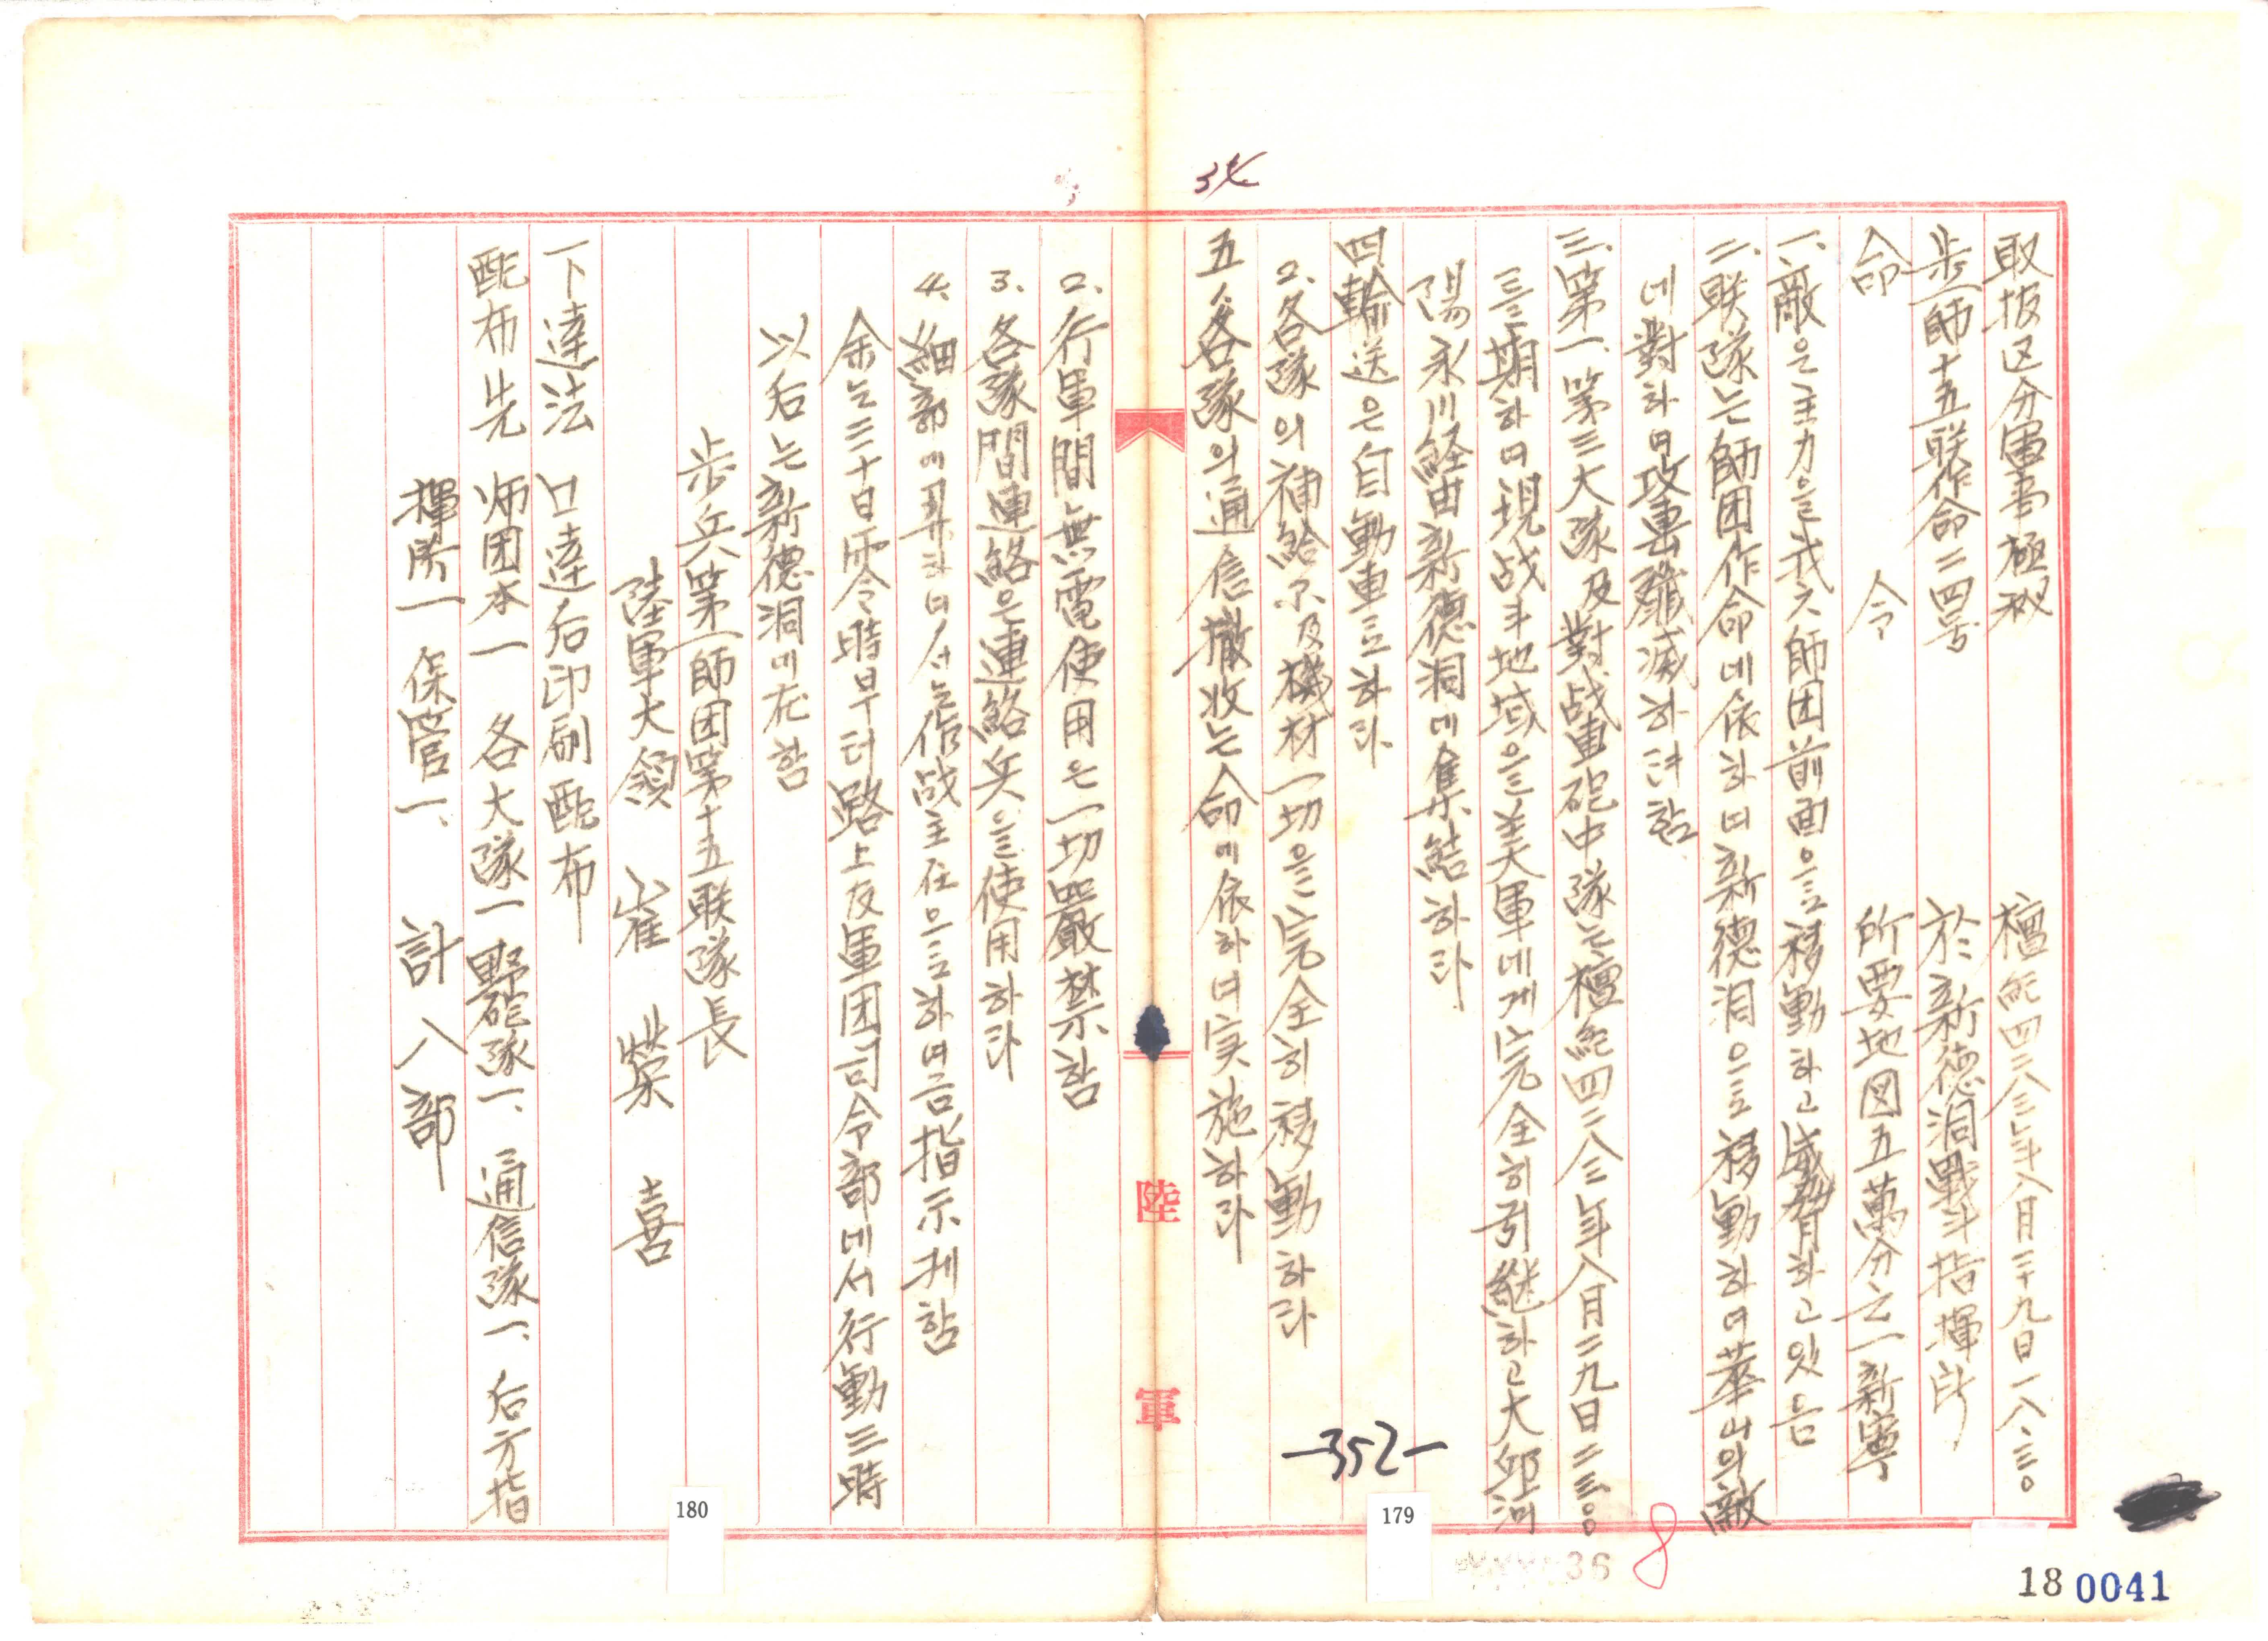 34
取扱区分軍事極秘 檀紀四二八三年八月二十九日一八.三〇
步一師十五联作命二四号 於新德洞戰斗指揮所
命 令 所要地図五萬分之一新寧
一、敵은主力을我六師団前面으로移動하고威脅하고있음
二、联隊는師団作命에依하여新德洞으로移動하여華山의敵
에對하여攻擊殲滅하려함
三、第一、第三大隊及對战車砲中隊는檀紀四二八三年八月二九日二三.〇〇
를期하여現战斗地域을美軍에게完全히引継하고大邱河
陽永川経由新德洞에集結하라
四、輸送은自動車로하라
2.各隊의補給品及機材一切을完全히移動하라
五、各隊의通信撤收는命에依하여実施하라
2.行軍間無電使用은一切嚴禁함
3.各隊間連絡은連絡兵을使用하라
4.細部에関하여서는作战主任으로하여금指示케함
余는三十日零時부터路上及軍団司令部에서行動三時
以后는新德洞에在함
步兵第一師団第十五联隊長
陸軍大領 崔榮喜
下達法 口達后印刷配布
配布先 师団本一 各大隊一野砲隊一、通信隊一、后方指
揮所一 保管一、 計八部
陸軍
-352-
180
179
36
8
18 0041